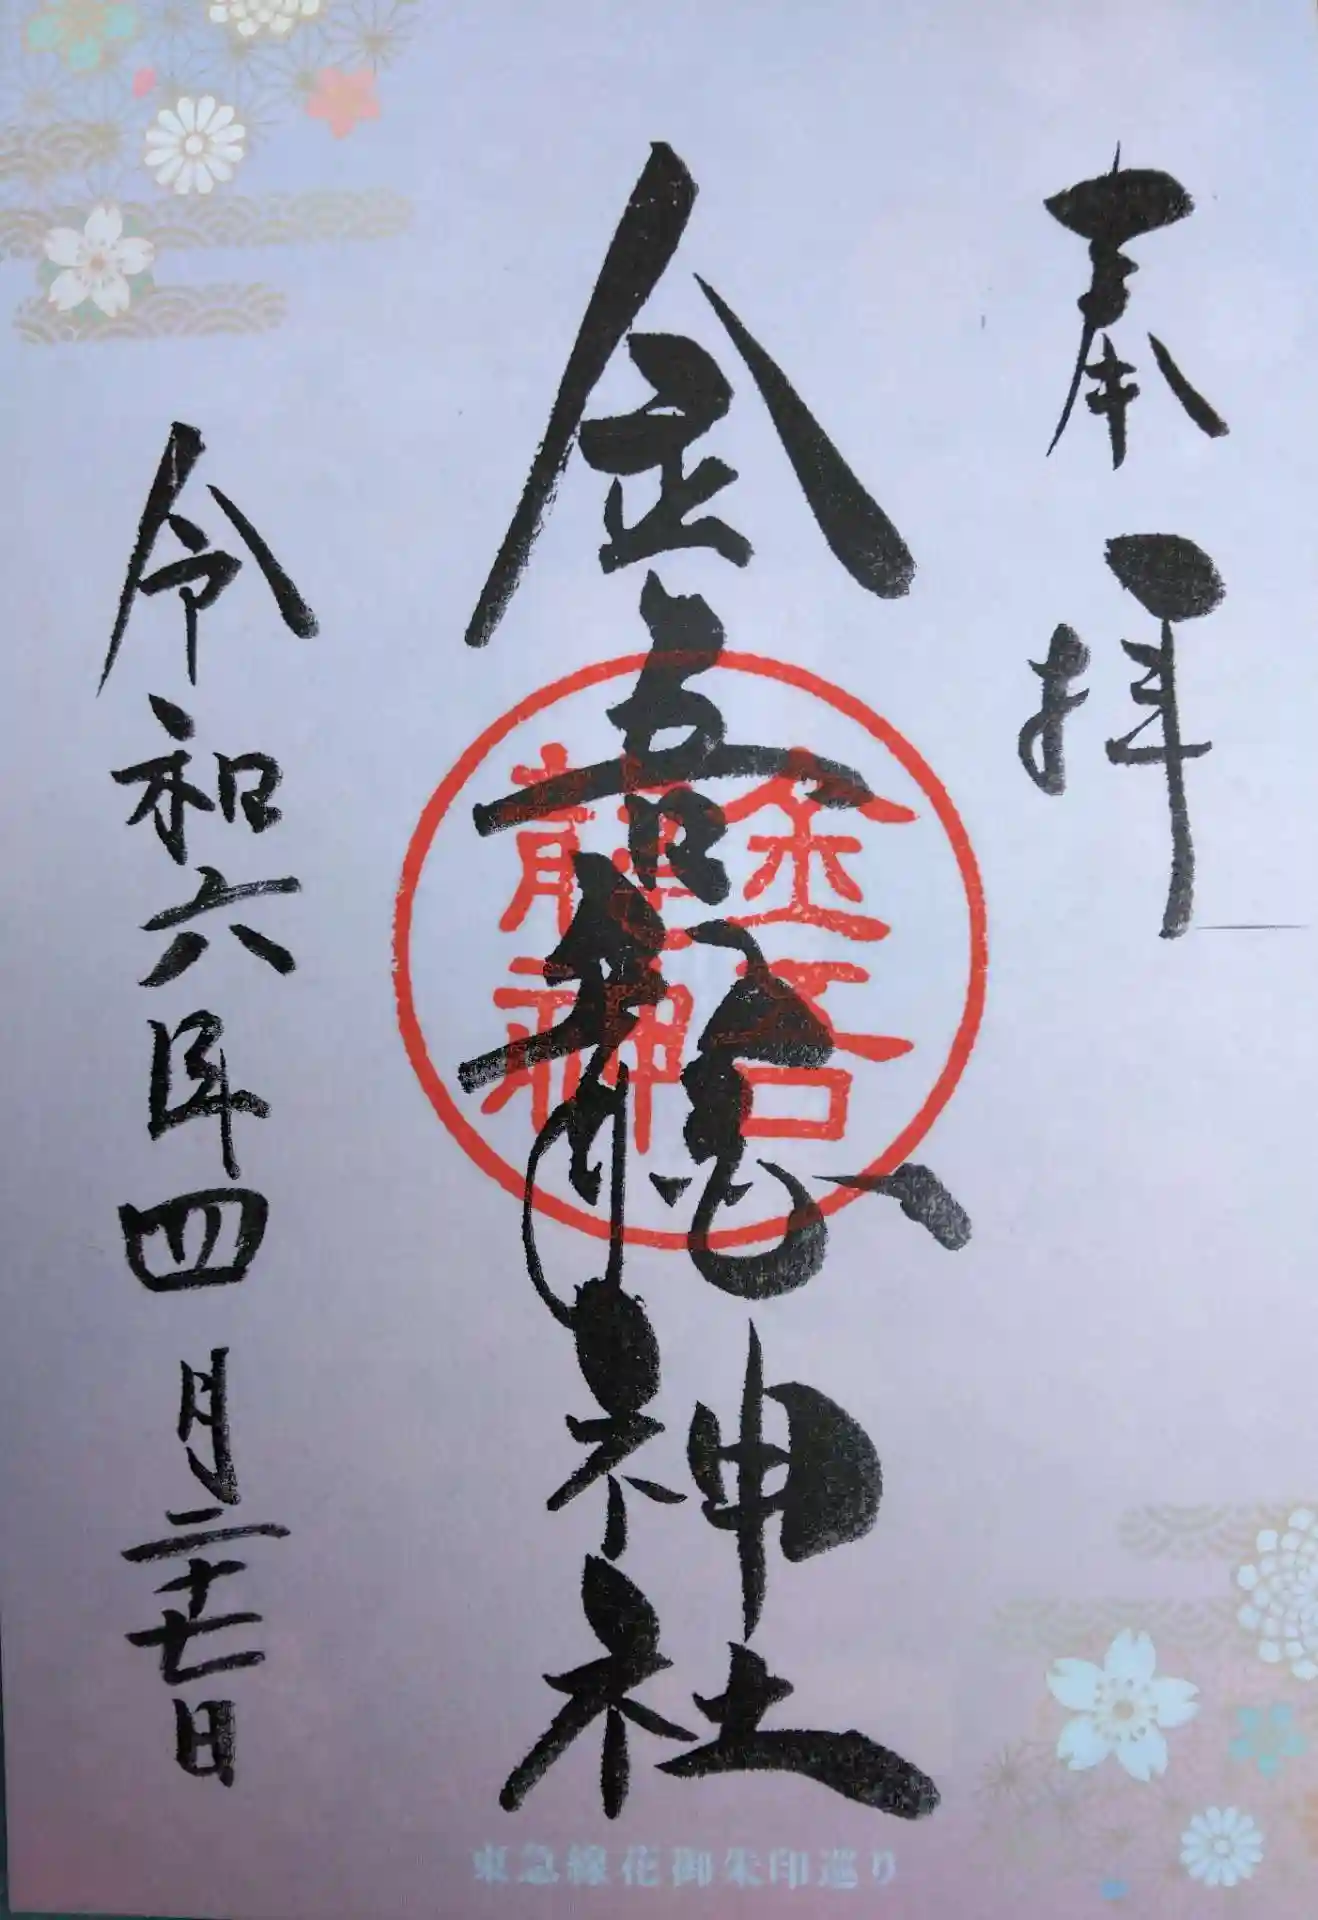 奉拝
金吉龍神社
金吉龍神
令和六年四月二十七日
東急線花御朱印巡り